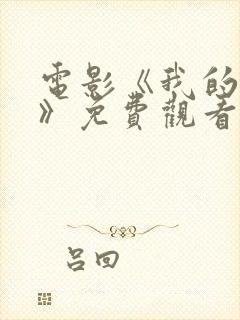 電影《我的
》免費觀看
呂回